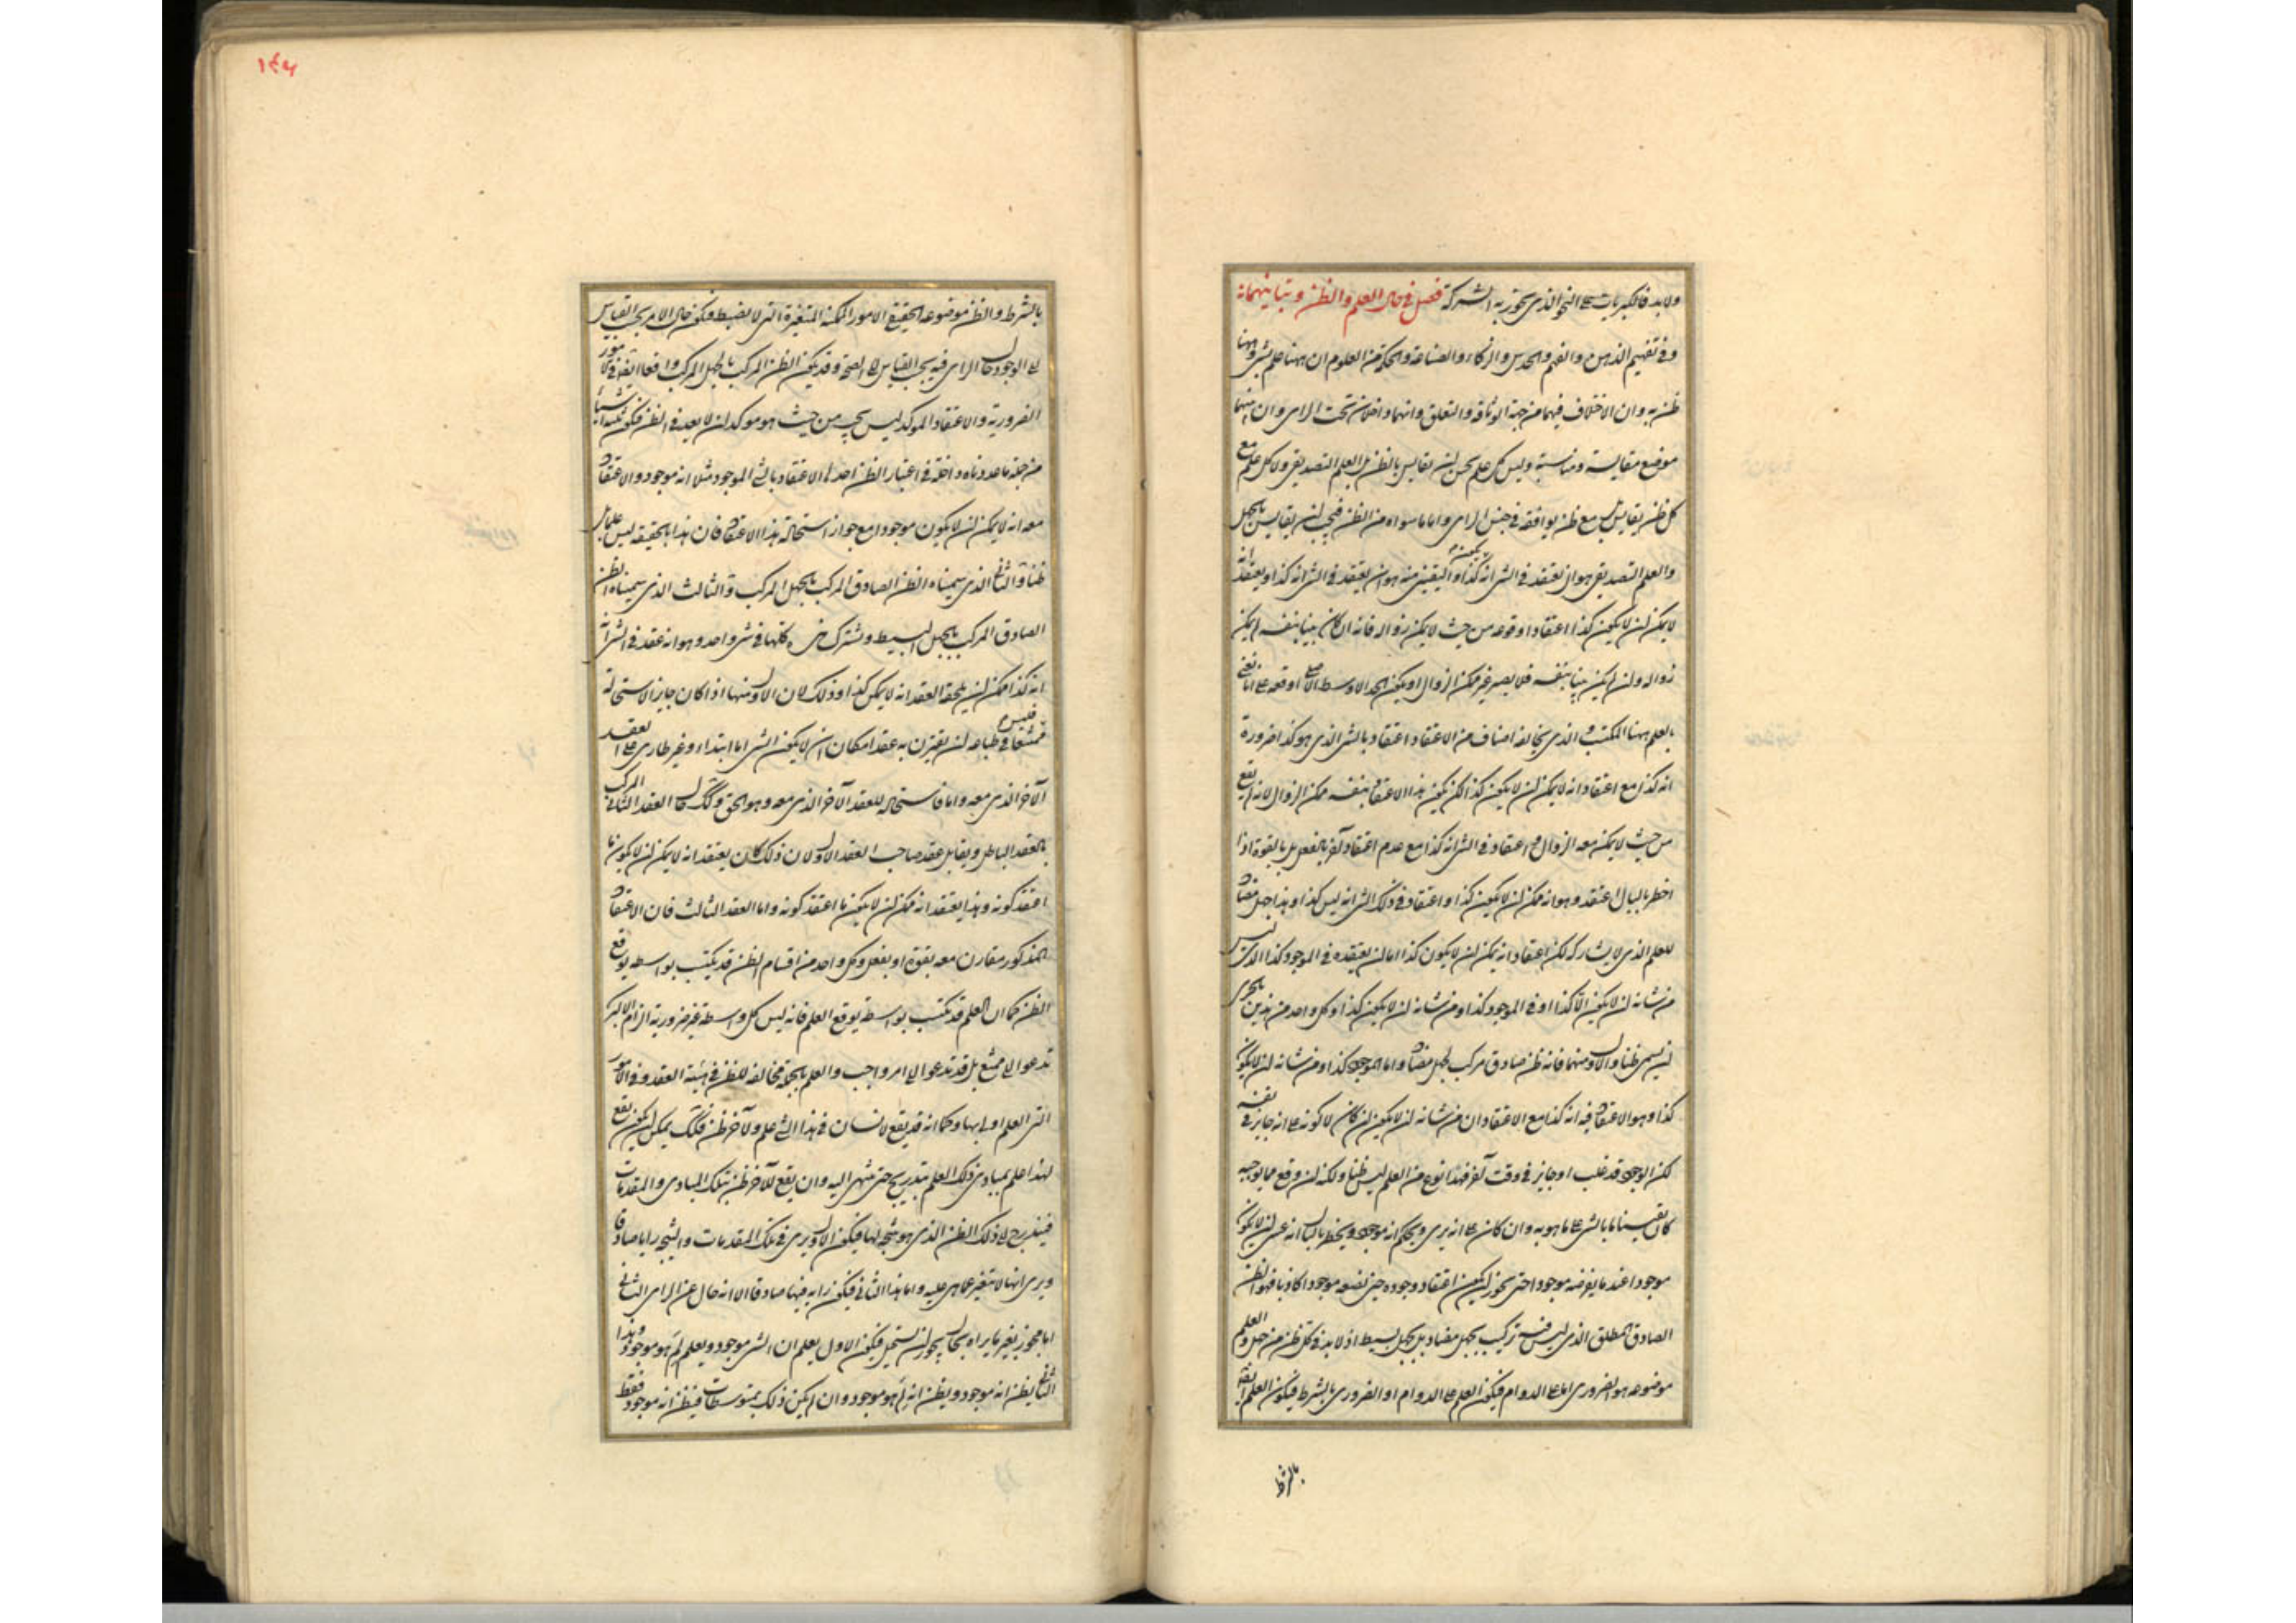 ولا بد فالكبريات على النحو الذي يجوز به الشركة فصل في حال العلم والظن وتباينهما
وفي تفهيم الذهن والفهم والحدس والذكاء والصناعة والحكمة من العلوم ان ههنا علم بشيء وههنا
ظن به وان الاختلاف فيهما من جهة الوثاقة والتعلق وانهما داخلان تحت الراي وان بينهما
موضع مقايسة ومناسبة وليس كل علم يحسن ان يقايس بالظن بل العلم التصديقي ولا كل علم مع
كل ظن يقايس بل مع ظن يوافقه في جنس الراي واما ما سواه من الظن فيجب ان يقايس بالجهل
والعلم التصديقي هو ان يعتقد في الشئ انه كذا واليقيني منه هو ان يعتقد في الشئ انه كذا ويعتقد انه
لا يمكن ان لا يكون كذا اعتقادا وقوعه من حيث لا يمكن زواله فانه ان كان بينا بنفسه لم يمكن
زواله وان لم يكن بينا بنفسه فلا يصير غير ممكن الزوال او يكون الحد الاوسط الاعلى اوقعه على انا نعني
بالعلم ههنا المكتسب والذي يخالفه اصناف من الاعتقاد اعتقاد بالشئ الذي هو كذا ضرورة
انه كذا مع اعتقاد انه لا يمكن ان لا يكون كذا لكن يكون هذا الاعتقاد بنفسه ممكن الزوال لانه لم يقع
من حيث لا يمكن معه الزوال واعتقاد في الشئ انه كذا مع عدم اعتقاد آخر بالفعل بل بالقوة اذا
اخطر بالبال اعتقد وهو انه ممكن ان لا يكون كذا واعتقاد في ذلك الشئ انه ليس كذا وهذا جهل مضاد
للعلم الذي لا يشاركه لكن اعتقاد انه يمكن ان لا يكون كذا اما ان يعتقده في الموجود كذا الذي ليس
من شانه ان لا يكون الا كذا او في الموجود كذا ومن شانه ان لا يكون كذا وكل واحد من هذين بالحري
ان يسمى ظنا والاول منهما فانه ظن صادق مركب بجهل مضاد واما الموجود كذا ومن شانه ان لا يكون
كذا وهو الاعتقاد فيه انه كذا مع الاعتقاد ان من شانه ان لا يكون ان كان لا كونه على انه جايز في نفسه
لكن الوجود قد غلب او جايز في وقت آخر فهذا نوع من العلم ليس ظنا ولكنه ان وقع مما يوجبه
كان يقينا ما بالشئ على ما هو به وان كان على انه يرى ويحكم انه موجود ويخطر بالبال انه عسى ان لا يكون
موجودا عندما يفرضه موجودا حتى يجوز ان يكون اعتقاد وجوده حين نضعه موجودا كاذبا فهو الظن
الصادق المطلق الذي ليس فيه تركيب بجهل مضاد بل بجهل بسيط اذ لا بد في كل ظن من جهل والعلم
موضوعه هو الضروري اما على الدوام فيكون العلم على الدوام او الضروري بالشرط فيكون العلم ايضا
بالشرط
١٤٢
بالشرط والظن موضوعه الحقيقي الامور الممكنة المتغيرة التي لا يضبط فيكون حال الامر بحسب القياس
الى الوجود حال الراي فيه بحسب القياس الى الصحة وقد يكون الظن المركب بالجهل المركب واقعا ايضا في الامور
الضرورية والاعتقاد الموكد ليس يجب من حيث هو موكد ان لا يعد في الظن فيكون ثلثة اشياء
من جملة ما عددناه داخلة في اعتبار الظن احدها الاعتقاد بالشئ الموجود مثلا انه موجود والاعتقاد
معه انه لا يمكن ان لا يكون موجودا مع جواز استحالة هذا الاعتقاد فان هذا بالحقيقة ليس علما بل
ظنا والثاني الذي سميناه الظن الصادق المركب بالجهل المركب والثالث الذي سميناه الظن
الصادق المركب بالجهل البسيط وتشترك هي كلها في شئ واحد وهو انه عقد في الشئ
انه كذا ممكن ان يلحقه العقد انه لا يمكن كذا وذلك لان الاول منها اذا كان جايز الاستحالة
فليس ممتنعا في طباعه ان يقترن به عقد امكان ان لا يكون الشئ اما ابتداء وغير طارئ على العقد
الآخر الذي معه واما فاستحالة للعقد الآخر الذي معه وهو الحق وكذلك حال العقد الثاني المركب
بالعقد الباطل ويقابل عقد صاحب العقد الاول لان ذلك كان يعتقد انه لا يمكن ان لا يكون ما
اعتقد كونه وهذا يعتقد انه ممكن ان لا يكون ما اعتقد كونه واما العقد الثالث فان الاعتقاد
المذكور مقارن معه بقوة او بفعل وكل واحد من اقسام الظن قد يكتسب بواسطة يوقع
الظن كما ان العلم قد يكتسب بواسطة يوقع العلم فانه ليس كل واسطة غير ضرورية الزام الاكبر
تدعو الى ممتنع بل قد تدعو الى امر واجب والعلم بالجملة مخالف للظن في هيئة العقد وفي الامور
التي العلم اولى بها وكما انه قد يقع لانسان في هذا الشئ علم ولآخر ظن فكذلك يمكن ان يكون يقع
لهذا علم بمبادي ذلك العلم بتدريج حتى ينتهي اليه وان يقع للآخر ظن بتلك المبادي والمقدمات
فيتدرج الى ذلك الظن الذي هو نتيجة لها فيكون الاول يرى في تلك المقدمات والنتيجة رايا صادقا
ويرى انها لا تتغير عما هي عليه واما هذا الثاني فيكون رايه فيها صادقا الا انه خال عن الراي الثاني
اما مجوز تغير ما يراه بحال يجوز ان تستحيل فيكون الاول يعلم ان الشئ موجود ويعلم لم هو موجود وهذا
الثاني يظن انه موجود ويظن انه لم هو موجود وان لم يكن ذلك بمتوسطات فيظن انه موجود فقط